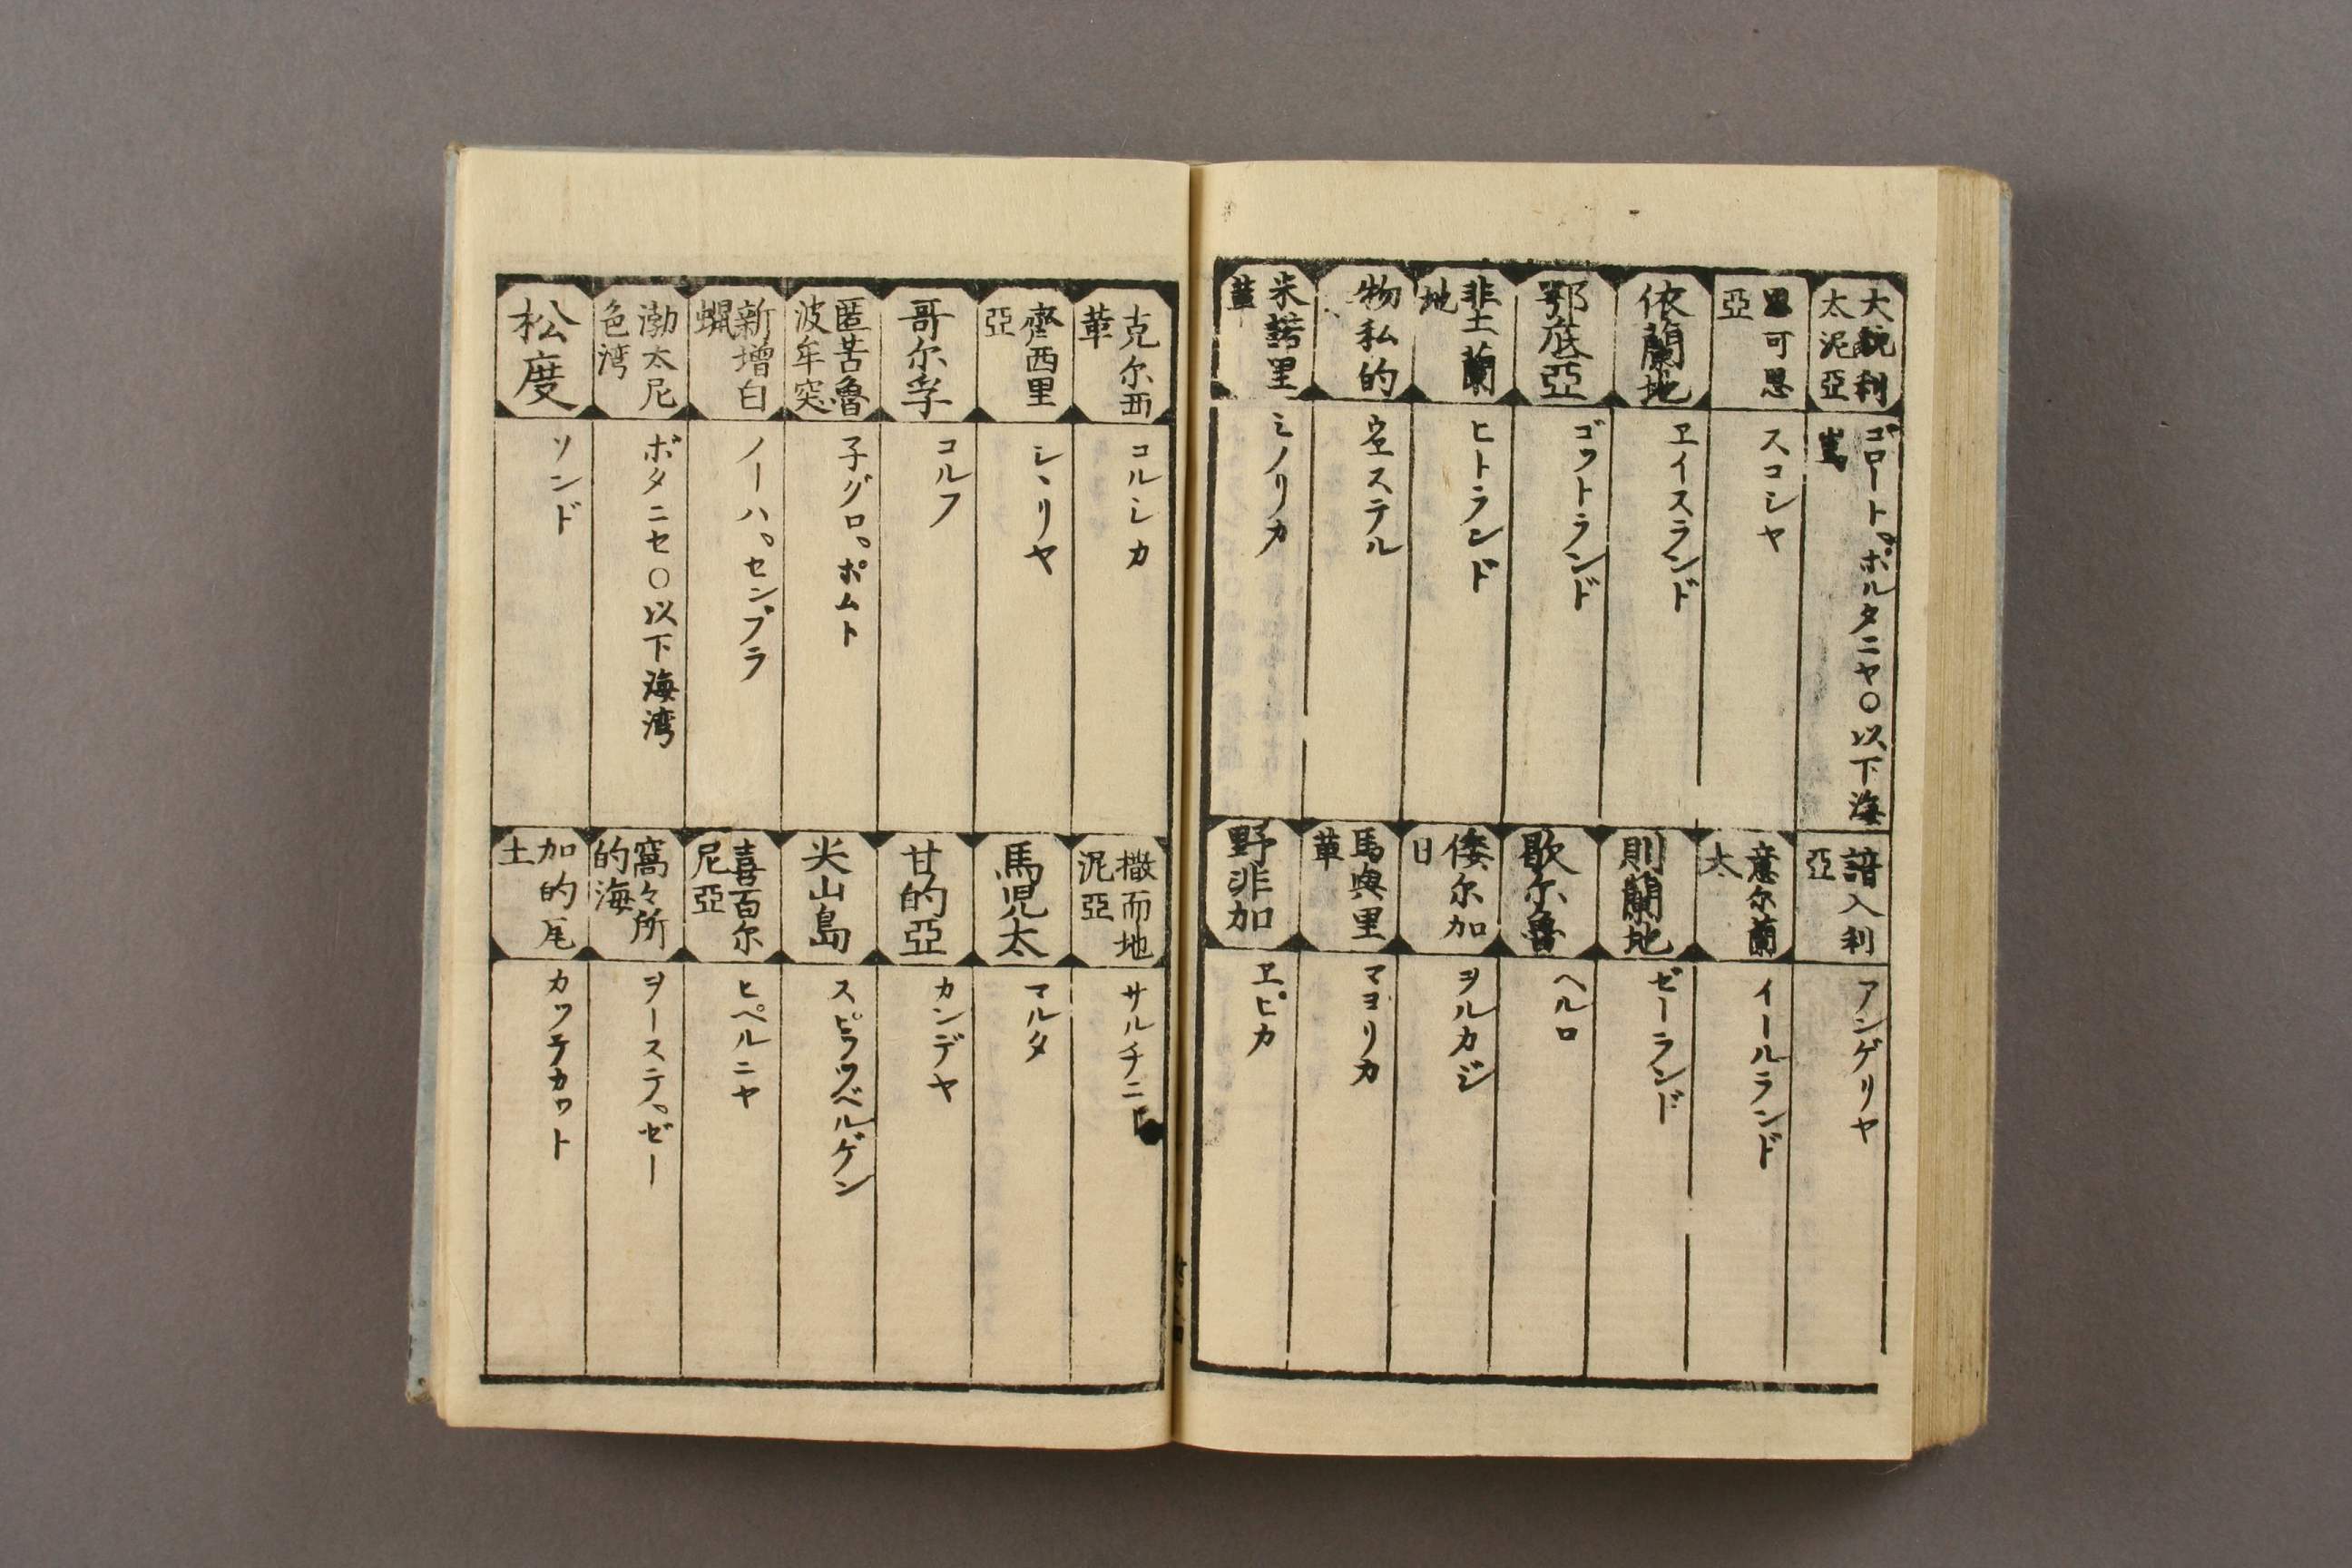 大貌利太泥亞
ゴロート。ポルタニヤ〇以下海島
諳入利亞
アンゲリヤ
思可思亞
スコシヤ
意尔蘭太
イールランド
依蘭地
ヱイスランド
則蘭地
ゼーランド
鄂底亞
ゴットランド
歇尔魯
ヘルロ
韭土蘭地
ヒトランド
倭尔加日
ヲルカジ
物私的
ウヱステル
馬與里革
マヨリカ
米諾里
ミノリカ
野非加
ヱビカ
克尓西革
コルシカ
撒而地泥亞
サルチニ
齊西里亞
シヽリヤ
馬児太
マルタ
哥尔孚
コルフ
甘的亞
カンデヤ
匿苦魯波牟突
子グロ。ポムト
尖山島
スピッツベルゲン
新増白蠟
ノーハ。センブラ
喜百尓尼亞
ヒペルニヤ
渤太尼色湾
ボタニセ〇以下海湾
窩々所的海
ヲーステ。ゼー
松度
ソンド
加的尾土
カッテカット